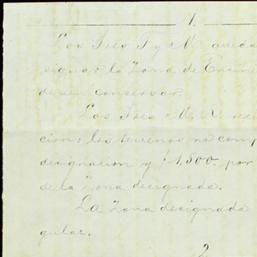 1.
Los Sres T y M. queda
signar la Zona de Encin
desee conservar.
Los Sres M. N.
cion, los terrenos no comp
designacion y $1,500. por
de la Zona designada.
La Zona designada
gular.
2